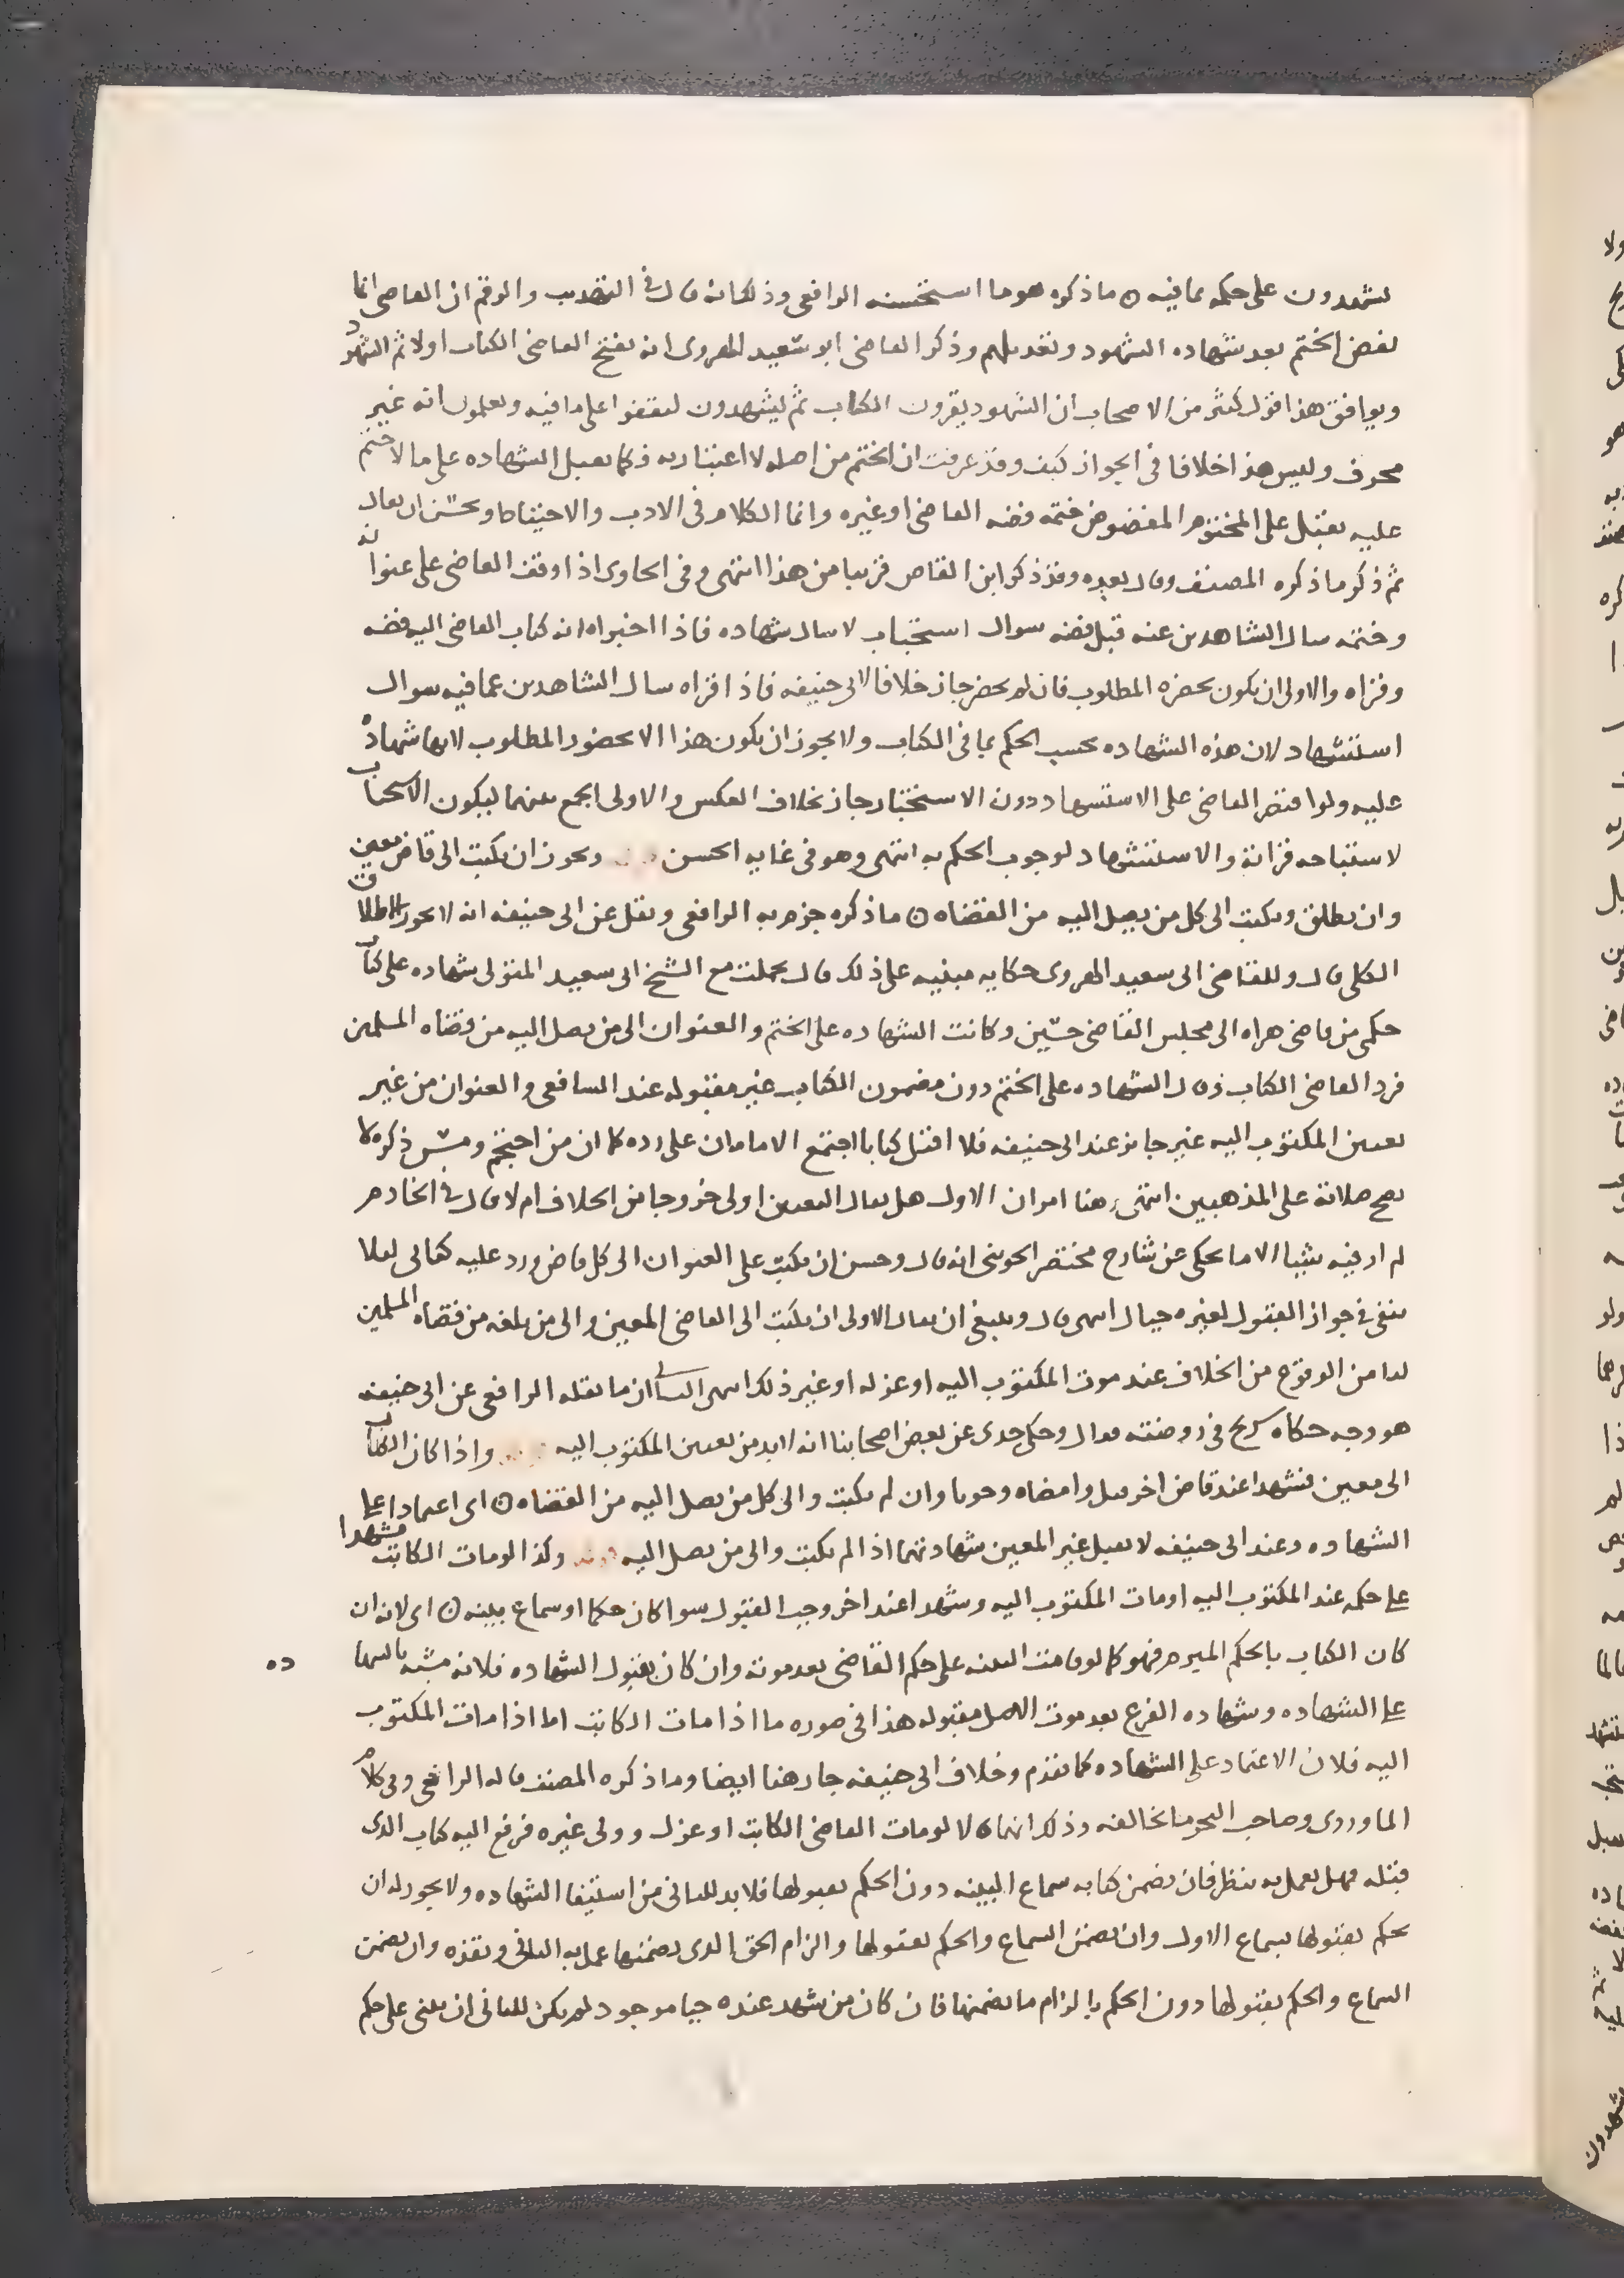 يشهدون على حكمه بما فيه ۞ ما ذكره هو ما استحسنه الرافعى وذلك انه قال فى التهذيب والرقم ان القاضى انما
يفض الختم بعد شهاده الشهود وتعديلهم وذكر القاضى ابو سعيد الهروى انه يفتح القاضى الكتاب اولا ثم الشهود
ويوافق هذا قول كثير من الاصحاب ان الشهود يقرون الكتاب ثم يشهدون ليقفوا على ما فيه ويعلمون انه غير
محرف وليس هذا خلافا فى الجواز كيف وقد عرفت ان الختم من اصله لا اعتبار به فكما يقبل الشهاده على ما لا ختم
عليه يقبل على المختوم المفضوض ختمه فضه القاضى او غيره وانما الكلام فى الادب والاحتياط ويحسن ان يقال
ثم ذكر ما ذكره المصنف وقال بعده وقد ذكر ابن القاص قريبا من هذا انتهى وفى الحاوى اذا وقف القاضى على عنوانه
وختمه سال الشاهدين عنه قبل فضه سوال استخبار لا سال شهاده فاذا اخبراه انه كتاب القاضى اليه فضه
وقراه والاولى ان يكون بحضره المطلوب فان لم يحضر جاز خلافا لابى حنيفه فاذا قراه سال الشاهدين عما فيه سوال
استشهاد لان هذه الشهاده بحسب الحكم بما فى الكتاب ولا يجوز ان يكون هذا الا بحضور المطلوب لانها شهادة
عليه ولو اقتصر القاضى على الاستشهاد دون الاستخبار جاز بخلاف العكس والاولى الجمع بينهما ليكون الاستخبار
لاستباحه قرانه والاستشهاد لوجوب الحكم به انتهى وهو فى غايه الحسن ويجوز ان يكتب الى قاض معين
وان يطلق ويكتب الى كل من يصل اليه من القضاه ۞ ما ذكره جزم به الرافعى ونقل عن ابى حنيفه انه لا يجوز الاطلاق
الكلى قال وللقاضى ابى سعيد الهروى حكايه مبنيه على ذلك قال تحملت مع الشيخ ابى سعيد المتولى شهاده على كتاب
حكمى من قاضى هراه الى مجلس القاضى حسين وكانت الشهاده على الختم والعنوان الى من يصل اليه من قضاه المسلمين
فرد القاضى الكتاب وقال الشهاده على الختم دون مضمون الكتاب غير مقبوله عند الشافعى والعنوان من غير
تعيين المكتوب اليه غير جائز عند ابى حنيفه فلا اقبل كتابا اجتمع الامامان على رده كما ان من احتجم ومس ذكره لا
تصح صلاته على المذهبين انتهى وهنا امران الاول هل يقال التعيين اولى خروجا من الخلاف ام لا قال فى الخادم
لم ار فيه شيا الا ما يحكى عن شارح مختصر الجوينى انه قال وحسن ان يكتب على العنوان الى كل قاض ورد عليه كتابى ليلا
يبقى فى جواز القبول لغيره خيال انتهى قال وينبغى ان يقال الاولى ان يكتب الى القاضى المعين والى من بلغه من قضاه المسلمين
لدا من الوقوع من الخلاف عند موت المكتوب اليه او عزله او غير ذلك انتهى الثانى ان ما نقله الرافعى عن ابى حنيفه
هو وجه حكاه شريح فى روضته فقال وحكى جدى عن بعض اصحابنا انه لا بد من تعيين المكتوب اليه واذا كان الكتاب
الى معين فشهدا عند قاض اخر قبل وامضاه وجوبا وان لم يكتب والى كل من يصل اليه من القضاه ۞ اى اعتمادا على
الشهاده وعند ابى حنيفه لا يقبل غير المعين شهادتهما اذا لم يكتب والى من يصل اليه وكذا لو مات الكاتب فشهدا
على حكمه عند المكتوب اليه او مات المكتوب اليه وشهدا عند اخر وجب القبول سوا كان حكما او سماع بينه ۞ اى لانه ان
كان الكتاب بالحكم المبرم فهو كما لو قامت البينه على حكم القاضى بعد موته وان كان بقبول الشهاده فلانه مشبه بالشهاده
على الشهاده وشهاده الفرع بعد موت الاصل مقبوله هذا فى صوره ما اذا مات الكاتب اما اذا مات المكتوب
اليه فلان الاعتماد على الشهاده كما تقدم وخلاف ابى حنيفه جار هنا ايضا وما ذكره المصنف قاله الرافعى وفى كلام
الماوردى وصاحب البحر ما يخالفه وذلك انهما قالا لو مات القاضى الكاتب او عزل وولى غيره فرفع اليه كتاب الذى
قبله فهل يعمل به ينظر فان تضمن كتابه سماع البينه دون الحكم بقبولها فلا بد للثانى من استيفا الشهاده ولا يجوز له ان
يحكم بقبولها بسماع الاول وان تضمن السماع والحكم بقبولها والزام الحق الذى تضمنها عمل به الثانى ونفذه وان تضمن
السماع والحكم بقبولها دون الحكم بالزام ما تضمنها فان كان من شهد عنده حيا موجود لم يكن للثانى ان يبنى على حكم